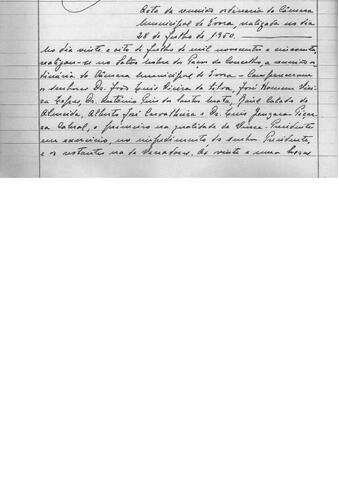 Acta da reunião ordinária da Câmara
Municipal de Évora, realizada no dia
28 de Julho de 1950.
No dia vinte e oito de Julho de mil novecentos e cincoenta,
realizou-se no Salão Nobre dos Paços do Concelho, a reunião or-
dinária da Câmara Municipal de Évora - Compareceram
os senhores Dr. José Luís Vieira da Silva, José Homem
Lopes, Dr. António Luís dos Santos Mata, Raúl Calado de
Almeida, Alberto José Carvalheira e Dr. Luís
Cabral, o primeiro na qualidade de Vice-Presidente
em exercício, no impedimento do senhor Presidente,
e os restantes na de Vereadores. Às vinte e uma horas